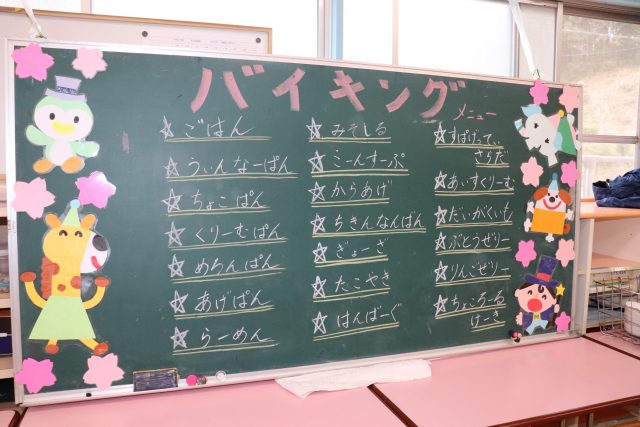 バイキング
メニュー
☆ごはん
☆うぃんなーぱん
☆ちょこぱん
☆くりーむぱん
☆めろんぱん
☆あげぱん
☆らーめん
☆みそしる
☆こーんすーぷ
☆からあげ
☆ちきんなんばん
☆ぎょーざ
☆たこやき
☆はんばーぐ
☆すぱげってぃ
さらだ
☆あいすくりーむ
☆だいがくいも
☆ぶどうぜりー
☆りんごぜりー
☆ちょころーる
けーき